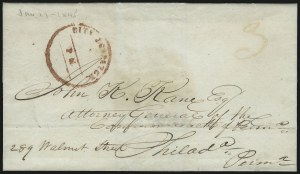 CITY DESPATCH
John K. Kane Esq
Attorney General of the
Commonwealth of Penna.
289 Walnut Street Philada.
Penna.